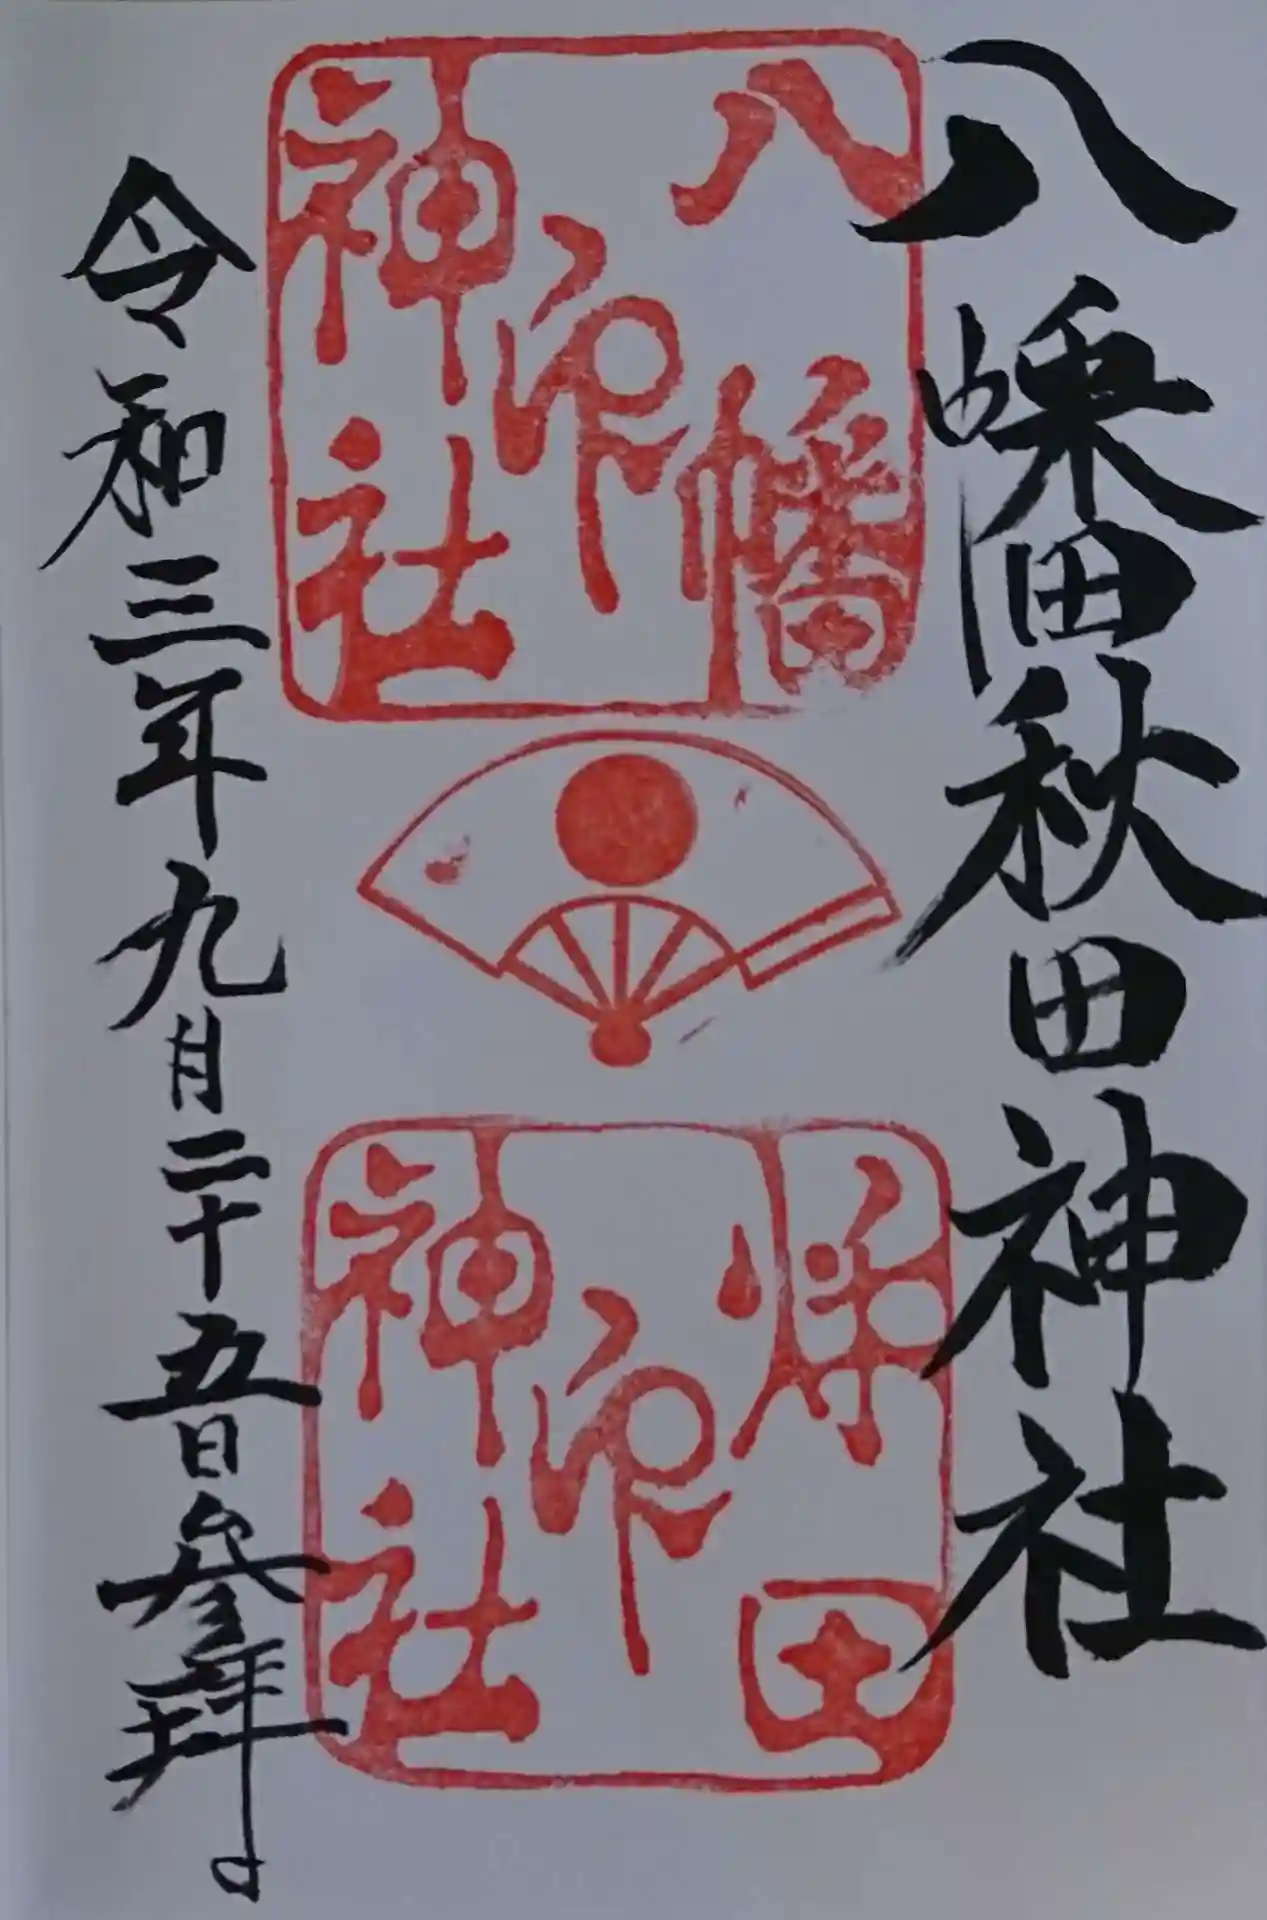 八幡秋田神社
八幡
印
神社
秋田
印
神社
令和三年九月二十五日参拝